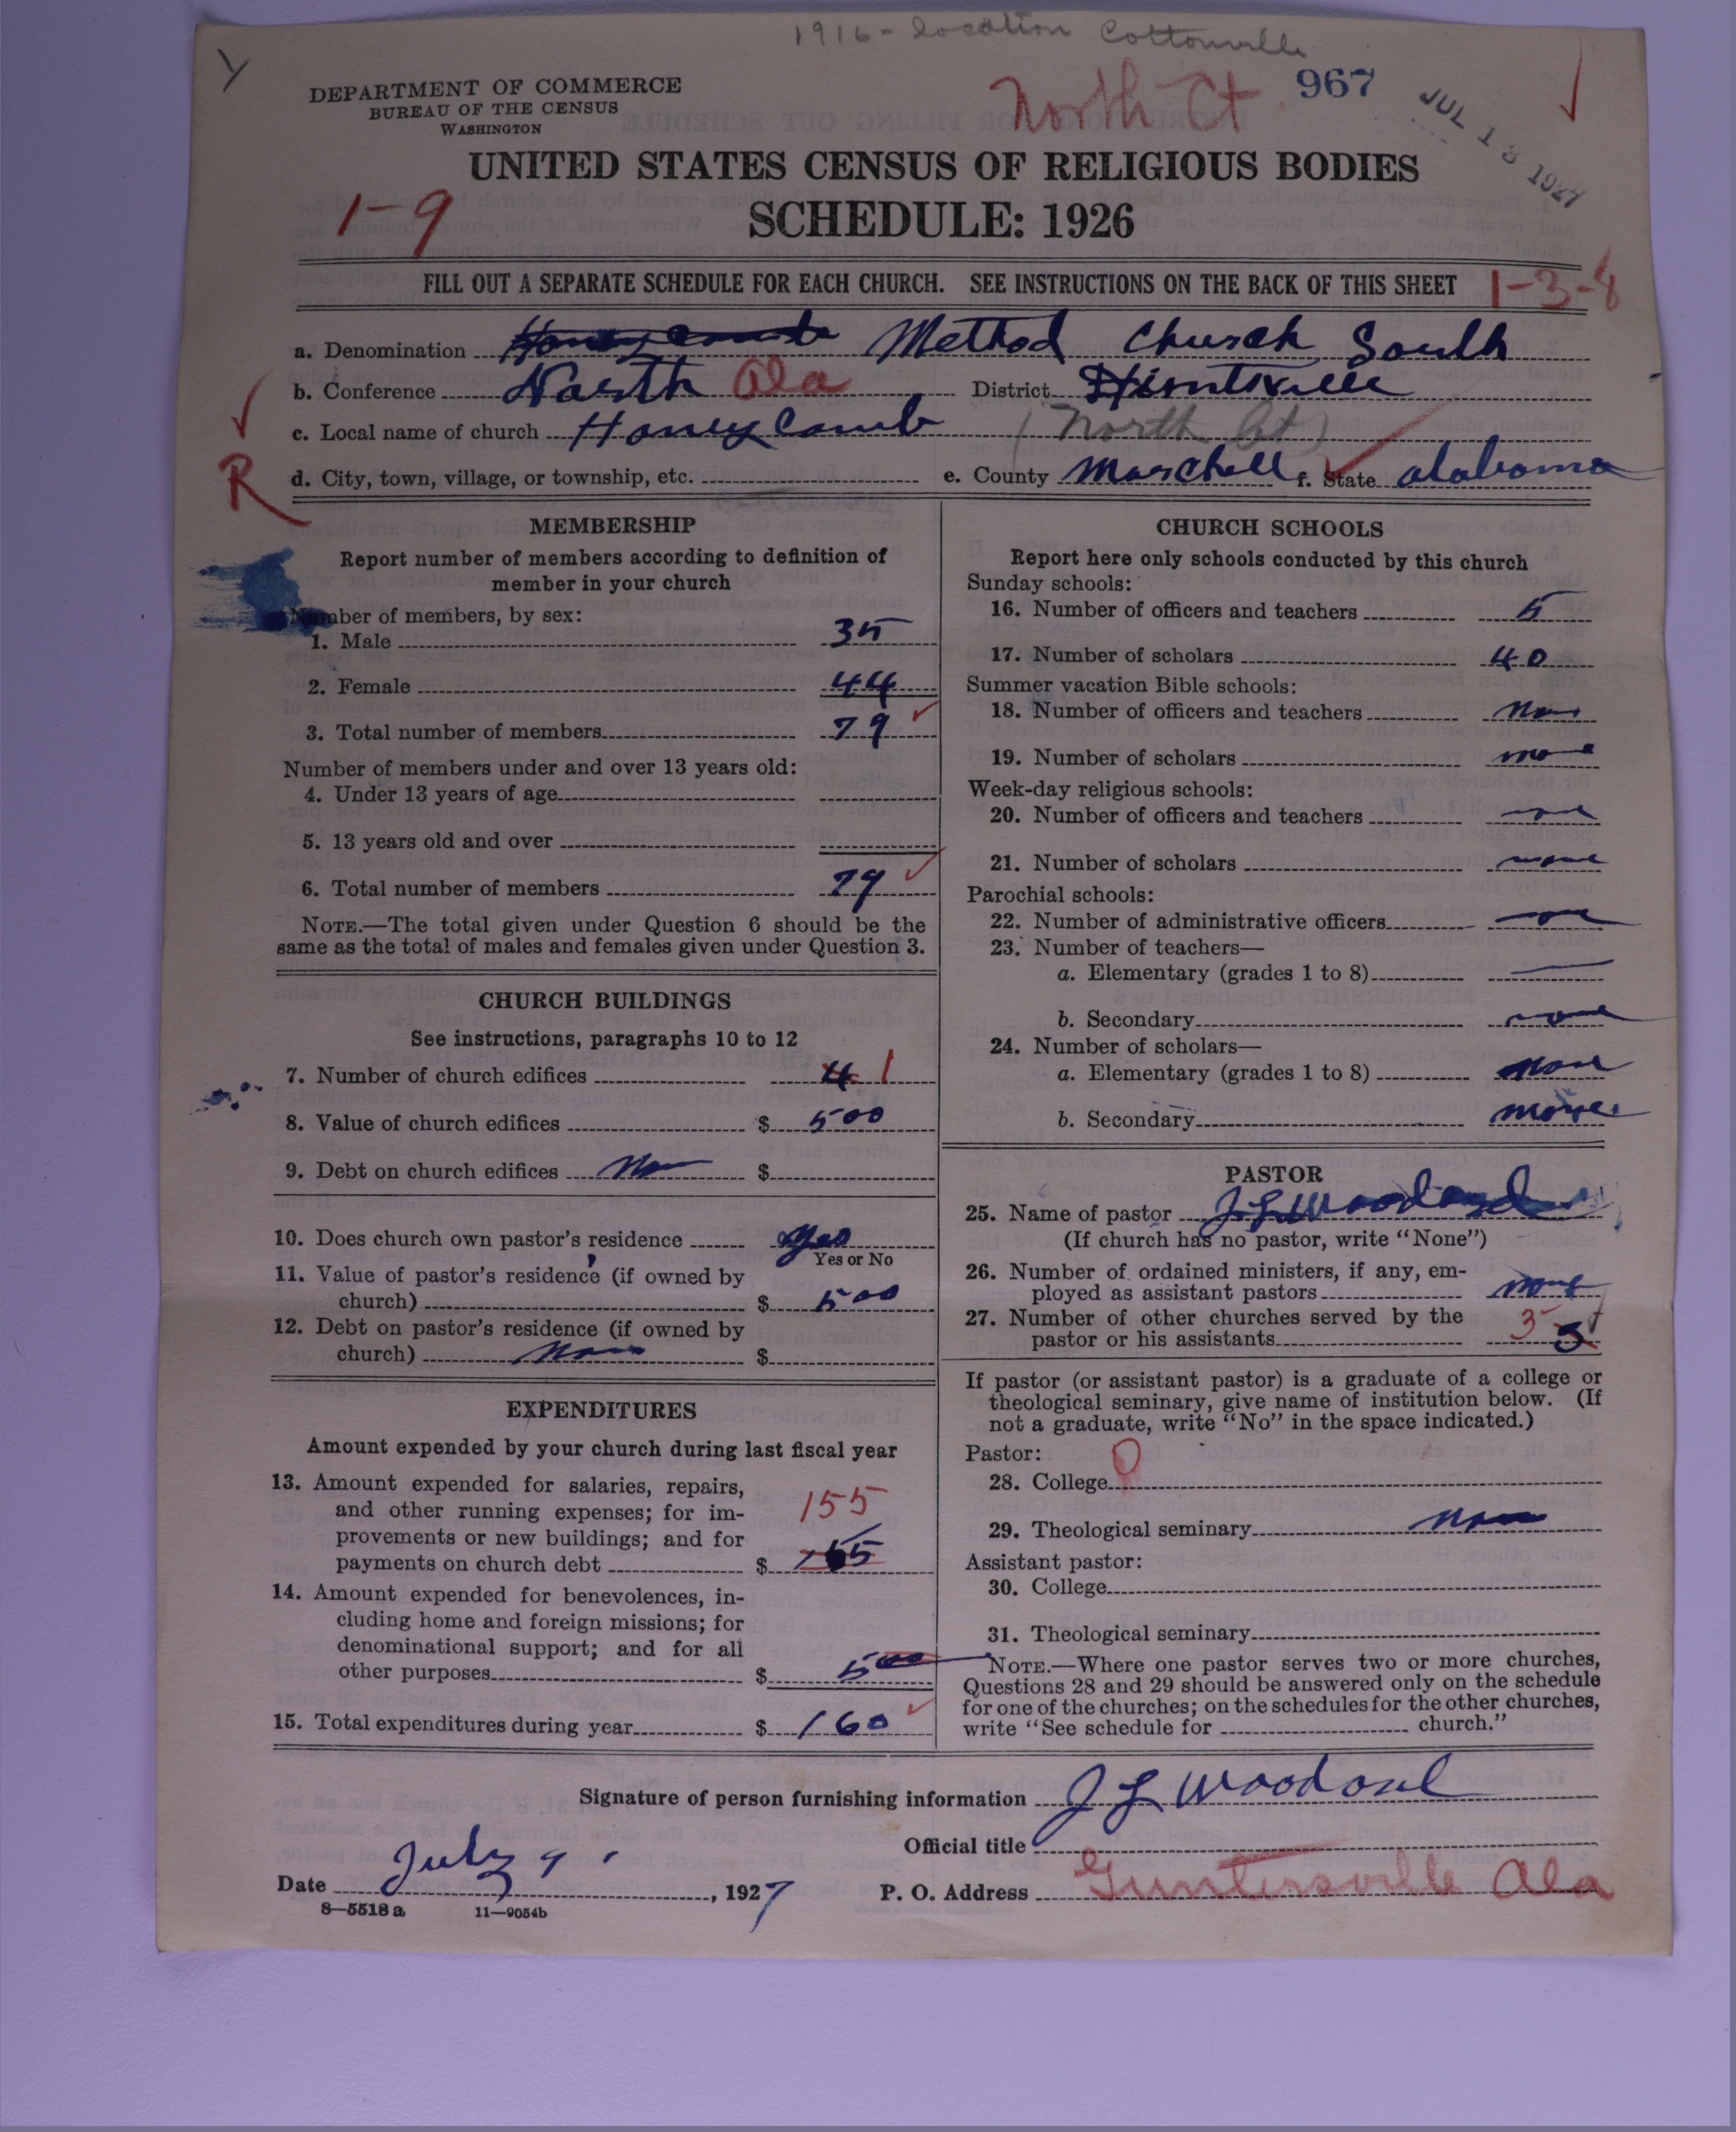 1916 - location Cottonville
DEPARTMENT OF COMMERCE
BUREAU OF THE CENSUS
WASHINGTON
North Ct. 967
JUL 13 1927
UNITED STATES CENSUS OF RELIGIOUS BODIES
1-9
SCHEDULE: 1926
FILL OUT A SEPARATE SCHEDULE FOR EACH CHURCH. SEE INSTRUCTIONS ON THE BACK OF THIS SHEET 1-3-8
a. Denomination Honeycomb Method Church South
b. Conference North Ala District Huntsville
c. Local name of church Honey Comb (North Ct)
R
d. City, town, village, or township, etc. e. County Marchell f. State Alabama
MEMBERSHIP
Report number of members according to definition of
member in your church
Number of members, by sex:
1. Male 35
2. Female 44
3. Total number of members 79
Number of members under and over 13 years old:
4. Under 13 years of age
5. 13 years old and over
6. Total number of members 79
NOTE.—The total given under Question 6 should be the
same as the total of males and females given under Question 3.
CHURCH BUILDINGS
See instructions, paragraphs 10 to 12
7. Number of church edifices 4 1
8. Value of church edifices $ 500
9. Debt on church edifices Non $
10. Does church own pastor's residence Yes
Yes or No
11. Value of pastor's residence (if owned by
church) $ 500
12. Debt on pastor's residence (if owned by
church) Non $
EXPENDITURES
Amount expended by your church during last fiscal year
13. Amount expended for salaries, repairs,
and other running expenses; for im-
provements or new buildings; and for
payments on church debt $ 155
14. Amount expended for benevolences, in-
cluding home and foreign missions; for
denominational support; and for all
other purposes $ 500
15. Total expenditures during year $ 160
CHURCH SCHOOLS
Report here only schools conducted by this church
Sunday schools:
16. Number of officers and teachers 5
17. Number of scholars 40
Summer vacation Bible schools:
18. Number of officers and teachers non
19. Number of scholars none
Week-day religious schools:
20. Number of officers and teachers none
21. Number of scholars none
Parochial schools:
22. Number of administrative officers none
23. Number of teachers—
a. Elementary (grades 1 to 8)
b. Secondary none
24. Number of scholars—
a. Elementary (grades 1 to 8) none
b. Secondary none
PASTOR
25. Name of pastor J L Woodard
(If church has no pastor, write "None")
26. Number of ordained ministers, if any, em-
ployed as assistant pastors none
27. Number of other churches served by the
pastor or his assistants 3
If pastor (or assistant pastor) is a graduate of a college or
theological seminary, give name of institution below. (If
not a graduate, write "No" in the space indicated.)
Pastor:
28. College 0
29. Theological seminary Non
Assistant pastor:
30. College
31. Theological seminary
NOTE.—Where one pastor serves two or more churches,
Questions 28 and 29 should be answered only on the schedule
for one of the churches; on the schedules for the other churches,
write "See schedule for church."
Signature of person furnishing information J L Woodard
Official title
Date July 9, 1927 P. O. Address Guntersville Ala
8—5518 a 11—9054b